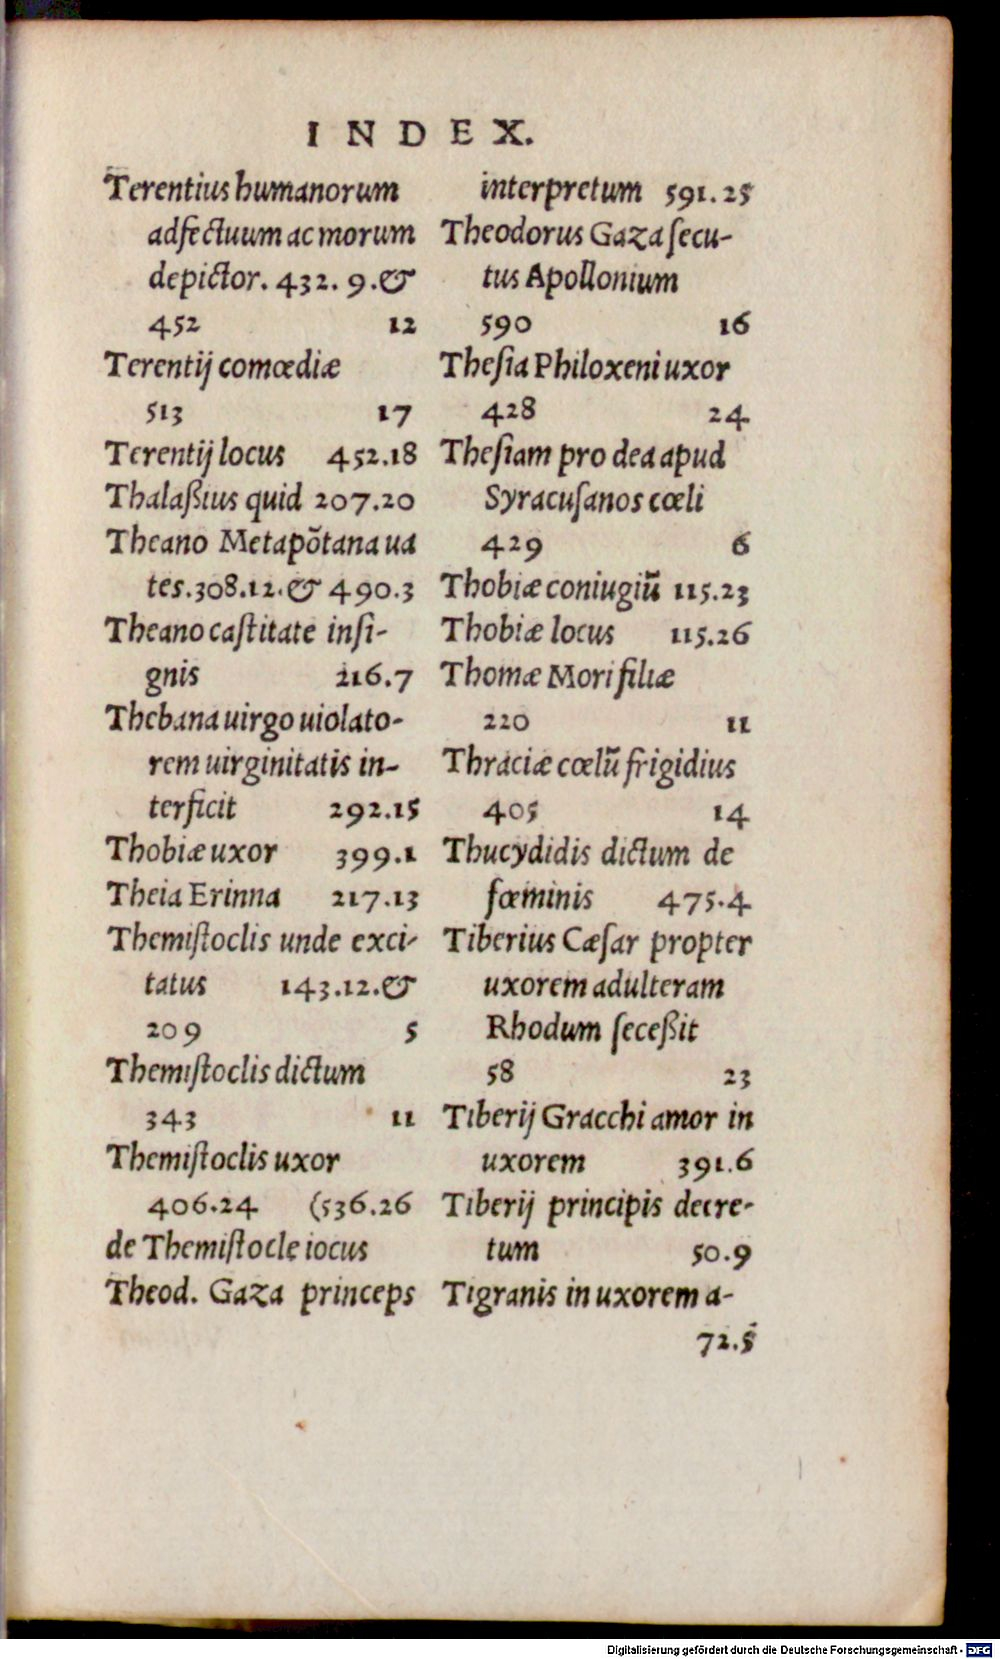 INDEX.
Terentius humanorum
adfectuum ac morum
depictor. 432. 9. &
452 12
Terentij comœdiæ
513 17
Terentij locus 452.18
Thalaßius quid 207.20
Theano Metapõtana ua
tes. 308.12. & 490.3
Theano castitate insi-
gnis 216.7
Thebana uirgo uiolato-
rem uirginitatis in-
terficit 292.15
Thobiæ uxor 399.1
Theia Erinna 217.13
Themiſtoclis unde exci-
tatus 143.12. &
209 5
Themiſtoclis dictum
343 11
Themiſtoclis uxor
406.24 (536.26
de Themiſtocle iocus
Theod. Gaza princeps
interpretum 591.25
Theodorus Gaza ſecu-
tus Apollonium
590 16
Theſia Philoxeni uxor
428 24
Theſiam pro dea apud
Syracuſanos cœli
429 6
Thobiæ coniugiũ 115.23
Thobiæ locus 115.26
Thomæ Mori filiæ
220 11
Thraciæ cœlũ frigidius
405 14
Thucydidis dictum de
fœminis 475.4
Tiberius Cæſar propter
uxorem adulteram
Rhodum ſeceßit
58 23
Tiberij Gracchi amor in
uxorem 391.6
Tiberij principis decre-
tum 50.9
Tigranis in uxorem a-
72.5
Digitalisierung gefördert durch die Deutsche Forschungsgemeinschaft - DFG